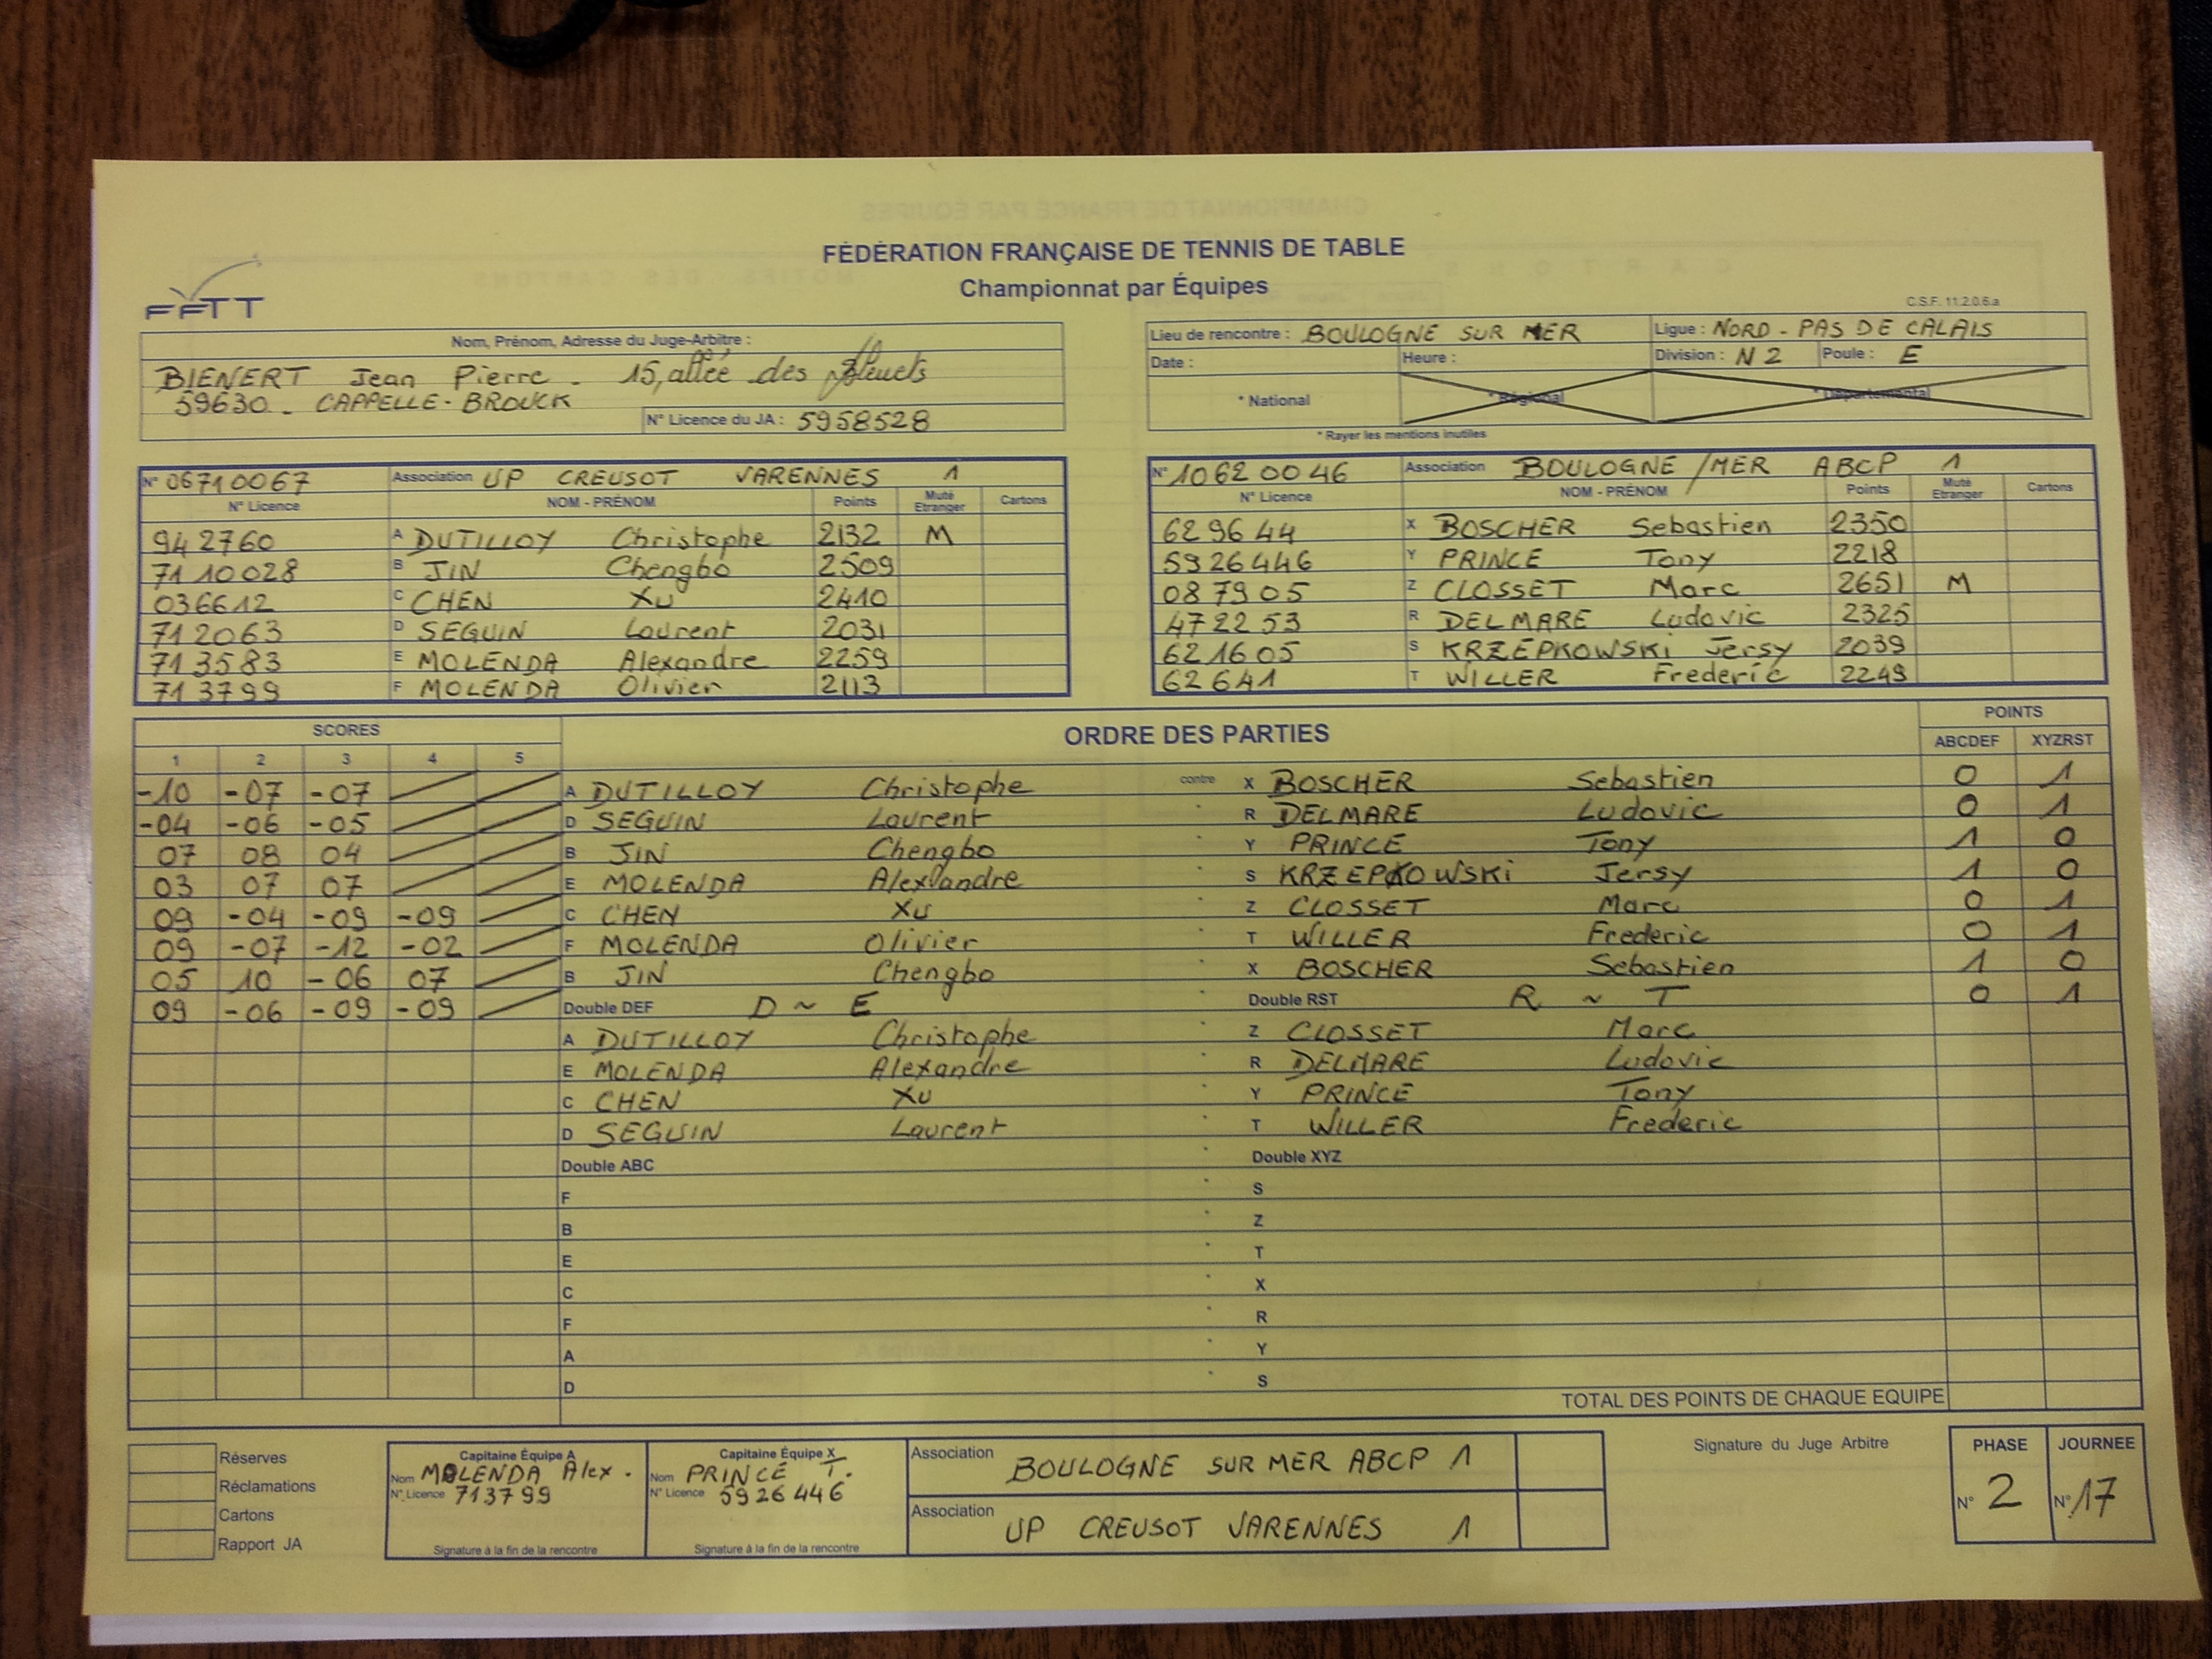 FÉDÉRATION FRANÇAISE DE TENNIS DE TABLE
Championnat par Équipes
FFTT
C.S.F. 11.2.0.6.a
Nom, Prénom, Adresse du Juge-Arbitre :
BIENERT Jean Pierre - 15, allée des Bleuets
59630 - CAPPELLE-BROUCK
N° Licence du JA : 5958528
Lieu de rencontre : BOULOGNE SUR MER Ligue : NORD - PAS DE CALAIS
Date : Heure : Division : N2 Poule : E
* National * Régional * Départemental
* Rayer les mentions inutiles
N° 06710067 Association UP CREUSOT VARENNES 1
N° Licence NOM - PRÉNOM Points Muté Etranger Cartons
942760 A DUTILLOY Christophe 2132 M
7110028 B JIN Chengbo 2509
036612 C CHEN Xu 2410
712063 D SEGUIN Laurent 2031
713583 E MOLENDA Alexandre 2259
713799 F MOLENDA Olivier 2113
N° 10620046 Association BOULOGNE /MER ABCP 1
N° Licence NOM - PRÉNOM Points Muté Etranger Cartons
629644 X BOSCHER Sebastien 2350
5926446 Y PRINCE Tony 2218
087905 Z CLOSSET Marc 2651 M
472253 R DELMARE Ludovic 2325
621605 S KRZEPKOWSKi Jersy 2039
62641 T WILLER Frederic 2249
SCORES ORDRE DES PARTIES POINTS
1 2 3 4 5 ABCDEF XYZRST
-10 -07 -07 A DUTILLOY Christophe contre X BOSCHER Sebastien 0 1
-04 -06 -05 D SEGUIN Laurent R DELMARE Ludovic 0 1
07 08 04 B JIN Chengbo Y PRINCE Tony 1 0
03 07 07 E MOLENDA Alexandre S KRZEPKOWSKi Jersy 1 0
09 -04 -09 -09 C CHEN Xu Z CLOSSET Marc 0 1
09 -07 -12 -02 F MOLENDA Olivier T WILLER Frederic 0 1
05 10 -06 07 B JIN Chengbo X BOSCHER Sebastien 1 0
09 -06 -09 -09 Double DEF D ~ E Double RST R ~ T 0 1
A DUTILLOY Christophe Z CLOSSET Marc
E MOLENDA Alexandre R DELMARE Ludovic
C CHEN Xu Y PRINCE Tony
D SEGUIN Laurent T WILLER Frederic
Double ABC Double XYZ
F S
B Z
E T
C X
F R
A Y
D S
TOTAL DES POINTS DE CHAQUE EQUIPE
Réserves
Réclamations
Cartons
Rapport JA
Capitaine Équipe A
Nom MOLENDA Alex.
N° Licence 713799
Signature à la fin de la rencontre
Capitaine Équipe X
Nom PRINCE T.
N° Licence 5926446
Signature à la fin de la rencontre
Association BOULOGNE SUR MER ABCP 1
Association UP CREUSOT VARENNES 1
Signature du Juge Arbitre
PHASE JOURNEE
N° 2 N° 17